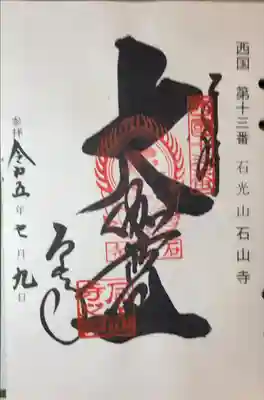 西国 第十三番 石光山石山寺
奉拝
大伽藍
石山寺
参拝 令和五年七月九日